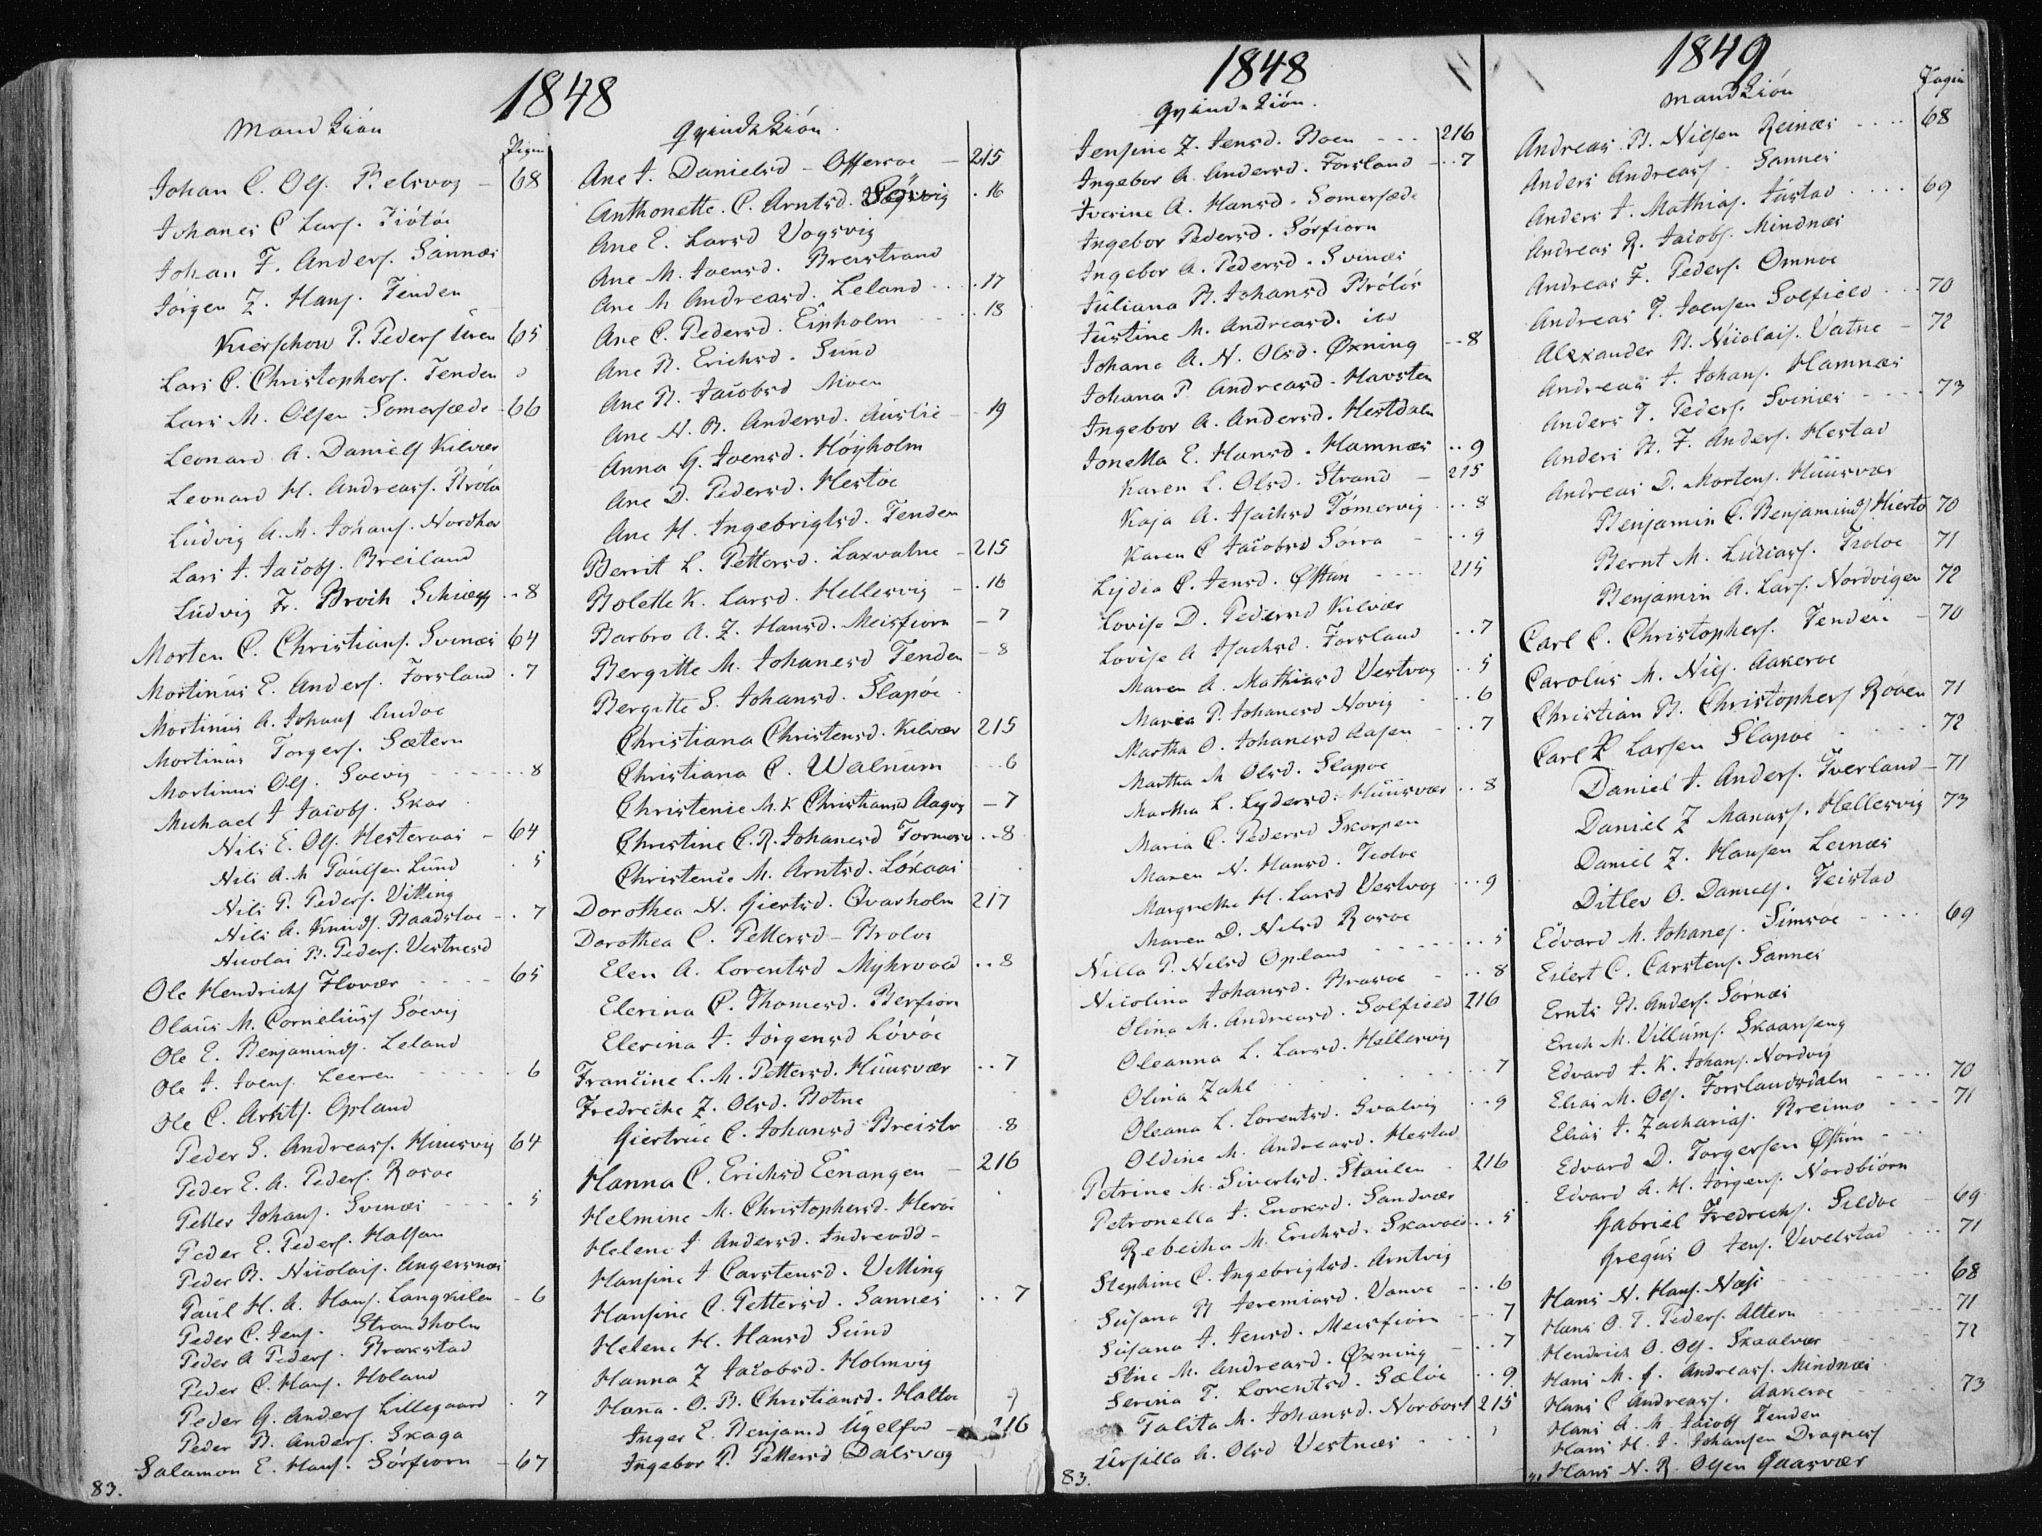 1848
Mandkión
Pagin
Johan C. Olf. Belsvog - 68
Johanes C Larf. Tiötöe
Johan F. Anderf. Sannæs
Jörgen Z. Hanf. Tenden
Kierschow P. Pederf Uren 65
Lars C. Christopherf. Tenden
Lars M. Olfen Somersæde - 66
Leonard A. Danielf Kilvær
Leonard H. Andreasf. Bröløs
Ludvig A. M. Johanf. Nordhus
Lars J. Jacobf. Breiland
Ludvig Fr. Broch Schieff .. 8
Morten C. Christianf. Svinæs 64
Mortinus E. Anderf. Forsland . 7
Mortinus A. Johanf
Mortinus Torgerf. Sætern
Mortinus Olf. Soevig - - - 8
Michael J Jacobf. Skar
Nils E. Olf. Hesteraas - 64
Nils A. M Paulfen Lund . 5
Nils P. Pederf. Vitting
Nils A. Knudf. Baadsloe - . 7
Nicolai B. Pederf. Vestnesd
Ole Hendrichf Flovær - - - 65
Olaus M. Corneliusf Söevig
Ole E. Benjaminf. Leland
Ole J. Joenf. Leeren - - - 6
Ole C. Arntf. Opland
Peder S. Andreasf. Huusvig 64
Peder E. A. Pederf. Rosoe
Petter Johanf. Svinæs - - - 5
Peder E. Pederf. Halfan
Peder B. Nicolaif. Angersnæs
Paul H. A. Hanf. Langkilen - 6
Peder C. Jenf. Strandholm
Peder A Pederf. Brakstad
Peder C. Hanf. Holand
Peder G. Anderf Lillegaard . 7
Peder B. Anderf. Skaga
Salamon E. Hanf. Sörfiorn - 67
83.
Qvindekión.
Ane J. Danielsd - Offersoe - 215
Anthonette. C. Arntsd. Søgvig . 16
Ane E. Larsd Vogsvig
Ane M. Joensd. Breistrand
Ane M Andreasd. Leland - - . 17
Ane C. Pedersd. Eipholm - - . 18
Ane B. Erichsd. Sund
Ane B. Jacobsd Moen
Ane N. B. Andersd. Auslie - - 19
Anna G. Joensd. Höyholm
Ane D. Pedersd. Hestöe
Ane H. Ingebrigtsd. Tenden
Berrit L. Pettersd. Laxvatne - 215
Bolette K. Larsd. Hellesvig - . 16
Barbro A. Z. Hansd. Meisfiorn - 7
Bergitte M. Johanesd Tenden - 8
Bergitte S. Johansd. Slapöe
Christiana Christensd. Kilvær 215
Christiana C. Walnum - - 6
Christenie M. K Christiansd Aagvig - 7
Christine C. R. Johanesd Formoes .. 8
Christenie M. Arntsd. Lökaas
Dorothea N. Giertsd. Qvarholm 217
Dorothea C. Pettersd - Broløs
Elen A. Lorentsd Myhrvold .. 8
Elerina C. Thomesd. Berfiorn
Elesina J. Jörgensd Lövöe
Francine L. M. Pettersd. Huusvær .. 7
Fredreche Z. Olsd. Botne
Giertrue C. Johansd Breistr . 8
Hanna C. Erichsd Eenangen - 216
Helmine M. Christophersd. Heröe
Helene J Andersd. Indrevold -
Hansine J Carstensd. Vitting
Hansine C. Pettersd. Sannes .. 7
Helene H. Hansd Sund
Hanna Z Jacobsd. Holmvig
Hana. O. B. Christiansd. Haltøe
Inger E. Benjamd Ugelfød - 216
Ingebor P. Pettersd Dalsvog
1848
Qvindekión.
Jensine Z. Jensd. Boen - - - 216
Ingebor A. Andersd. Forsland - .. 7
Iverine A. Hansd. Somersæde
Ingebor Pedersd. Sörfiorn
Ingebor A. Pedersd. Svinæs
Juliana B. Johansd Brölös
Justine M. Andreasd. ibd
Johana A. N. Olsd. Øxning - - 8
Johana P. Andreasd. Havsten
Ingebor A. Andersd. Hestdalen
Jonetta E. Hansd. Hamnæs .. 9
Karen L. Olsd. Strand - 215
Kaja A. Isachsd Tömervig .. 8
Karen C Jacobsd Sörra - . 9
Lydia C. Jensd. Øfttun - - - 215
Lovise D. Pedersd Kilvær
Lovise A Isachsd. Forsland .. 7
Maren A. Mathiasd Vestvog .. 5
Maria P. Johanesd Novig - . 6
Martha O. Johanesd Aasen - . . 7
Martha M Olsd. Slapöe
Martha L. Lydersd. Huusvær .. 8
Maria C. Pedersd Skorpen
Maren N. Hansd. Tiolöe
Margrethe H. Larsd Vestvog .. 9
Maren D. Nilsd Rosoe
Nilla P. Nilsd Opland - - - . 5
Nicolina Johansd. Brasøe - .. 8
Olina M. Andreasd. Solfield 216
Oleanna L. Larsd. Hellesvig
Olina Zahl . . . - - - 7
Oleana L. Lorentsd. Svalvig .. 9
Oldine M. Andreasd. Hestad
Petrine M. Sivertsd. Staulen . 216
Petronella J. Enoksd. Sandvær
Rebecha M. Erichsd. Skavold .. 5
Stephine C. Ingebrigtsd. Arntvig
Susana B Jeremiasd. Vanve - - 6
Susana J. Jensd. Meisfiorn - - 7
Stine M. Andreasd. Øxning - . . 7
Serina T. Lorentsd. Sæløe . . 9
Talita M. Johansd. Norbost 215
Ursilla A. Olsd Vestnæs - - -
83.
1849
Mandkión
Pagin
Andreas B. Nielsen Reinæs . . . . 68
Anders Andreasf. Sannes
Anders J. Mathiasf. Tustad . . . . 69
Andreas R. Jacobf. Mindnæs
Andreas F. Pederf. Omnøe
Andreas T. Joensen Solfield . . 70
Alexander B. Nicolaif. Vatne - 72
Andreas J. Johanf. Hamnæs
Anders T. Pederf. Svinæs - - - 73
Anders B. F. Anderf. Hestad
Andreas D. Mortenf. Huusvær
Benjamin C. Benjaminf Hiertø 70
Bernt M. Luciasf. Tiolöe 71
Benjamin A. Larf. Nordvigen 72
Carl C. Christopherf. Tenden - 70
Carolus M. Nilf. Aakeröe
Christian B. Christopherf Röven 71
Carl P Larsen Slapöe - - - 72
Daniel J. Anderf. Tverland - 71
Daniel Z Manasf. Hellesvig 73
Daniel Z. Hansen Leinæs
Ditlev O. Danielf. Teistad
Edvard M. Johanef. Simsöe . . . . 69
Eilert C. Carstenf. Sannes
Ernts B. Anderf. Sörnæs
Erich M. Villumf. Skaanseng
Edvard J. K. Johanf. Nordvig
Elias M. Olf. Forslandsdaln - - - 70
Elias J. Zachariaf. Breimo - - - 71
Edvard D. Torgersen Øfttun - -
Edvard A. H. Jörgenf. Nordbiörn
Gabriel Fredrichf. Sildøe - 69
Gregus O Jenf. Vevelstad . . . 71
Hans N. Hanf. Næss - - - 68
Hans O. T. Pederf. Altern - - - 71
Hendrich O. Olf. Skaalvær - - - 72
Hans M. J. Andreasf. Mindnæs
Hans C Andreasf. Aakeröe - - - 73
Hans A. M. Jacobf Tenden
Hans H. J. Johansen Dragnæs
Hans N. R. Olfen Gaasvær